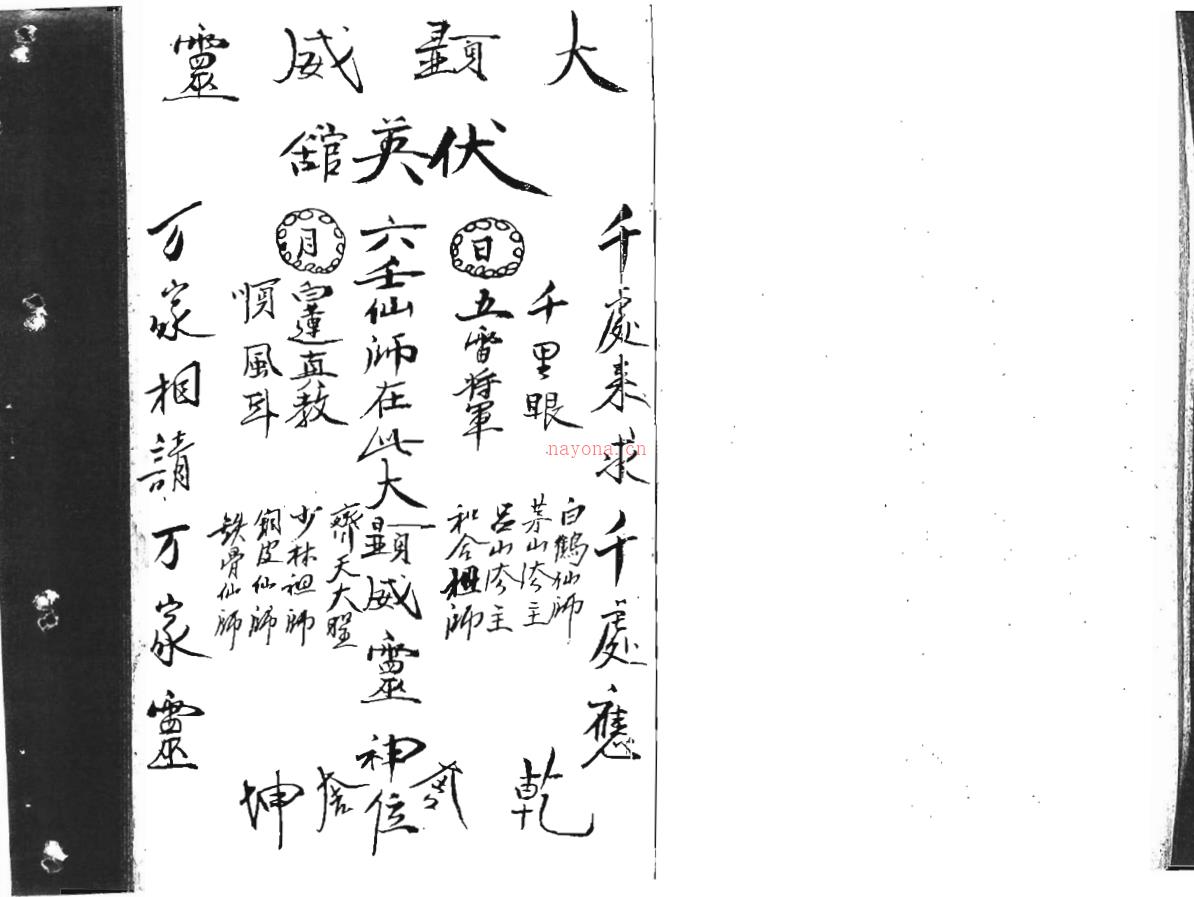 大顯威靈
伏英舘
千處來求千處應
日
千里眼
五雷將軍
白鶴仙師
茅山法主
呂山法主
和合祖師
六壬仙師在此大顯威靈神位
月
白蓮直教
順風耳
齊天大聖
少林祖師
銅皮仙師
鉄骨仙師
万家相請万家靈
乾
坤
nayona.cn